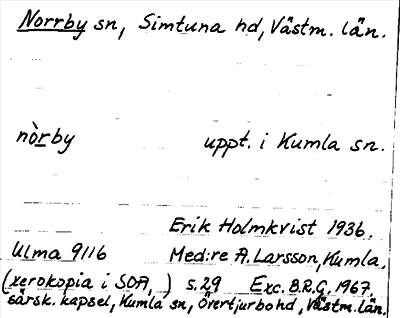 Norrby sn, Simtuna hd, Västm. län.
nòrby uppt. i Kumla sn.
Erik Holmkvist 1936.
Ulma 9116 Med:re A. Larsson, Kumla.
(xerokopia i SOA, ) s. 29 Exc. B.R.G. 1967.
särsk. kapsel, Kumla sn, Övertjurbo hd, Västm. län.